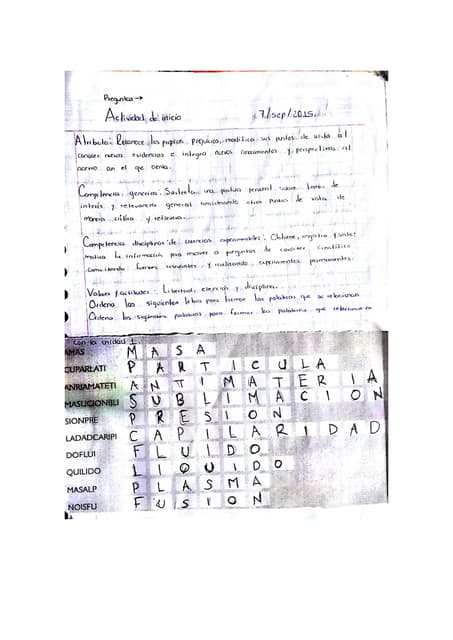 Preguntas →
Actividad de inicio 7/sep/2015.
Atributo: Reconoce los propios prejuicios, modifica sus puntos de vista al
conocer nuevas evidencias e integra nuevos conocimientos y perspectivas al
acervo con el que cuenta.
Competencia generica: Sustenta una postura personal sobre temas de
interés y relevancia general considerando otros puntos de vista de
manera critica y reflexiva.
Competencia disciplinar de ciencias experimentales: Obtiene, registra y siste
matiza la información para responder a preguntas de caracter cientifico
consultando fuentes relevantes y realizando experimentos pertinentes.
Valores y actitudes: Libertad, elección y disciplina.
Ordena las siguientes letras para formar las palabras que se relacionan
Ordena las siguientes palabras para formar las palabras que relacionan
con la unidad 1.
AMAS M A S A
CUPARLATI P A R T I C U L A
ANRIAMATETI A N T I M A T E R I A
MASLICIONBLI S U B L I M A C I O N
SIONPRE P R E S I O N
LADADCARIPI C A P I L A R I D A D
DOFLUI F L U I D O
QUILIDO L I Q U I D O
MASALP P L A S M A
NOISFU F U S I O N